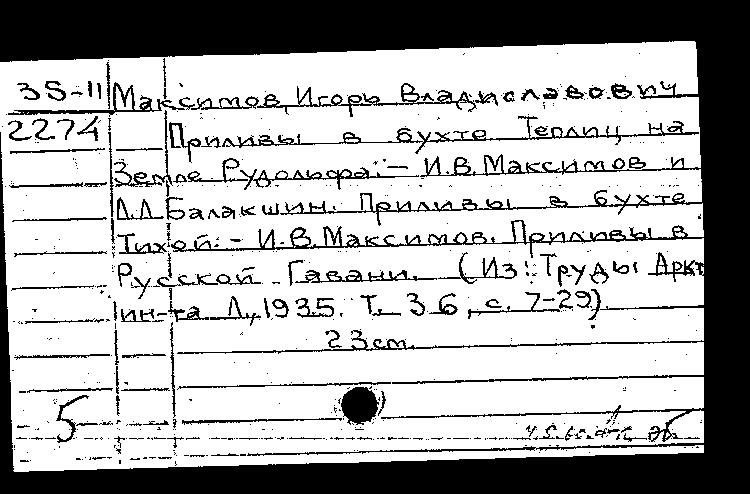 35-11 Максимов, Игорь Владиславович
2274 Приливы в бухте Теплиц на
Земле Рудольфа. - И.В. Максимов и
Л.Л Балакшин. Приливы в бухте
Тихой. - И.В. Максимов. Приливы в
Русской Гавани. (Из: Труды Аркт
ин-та Л., 1935. Т. 36, с. 7-29).
23 cm.
5